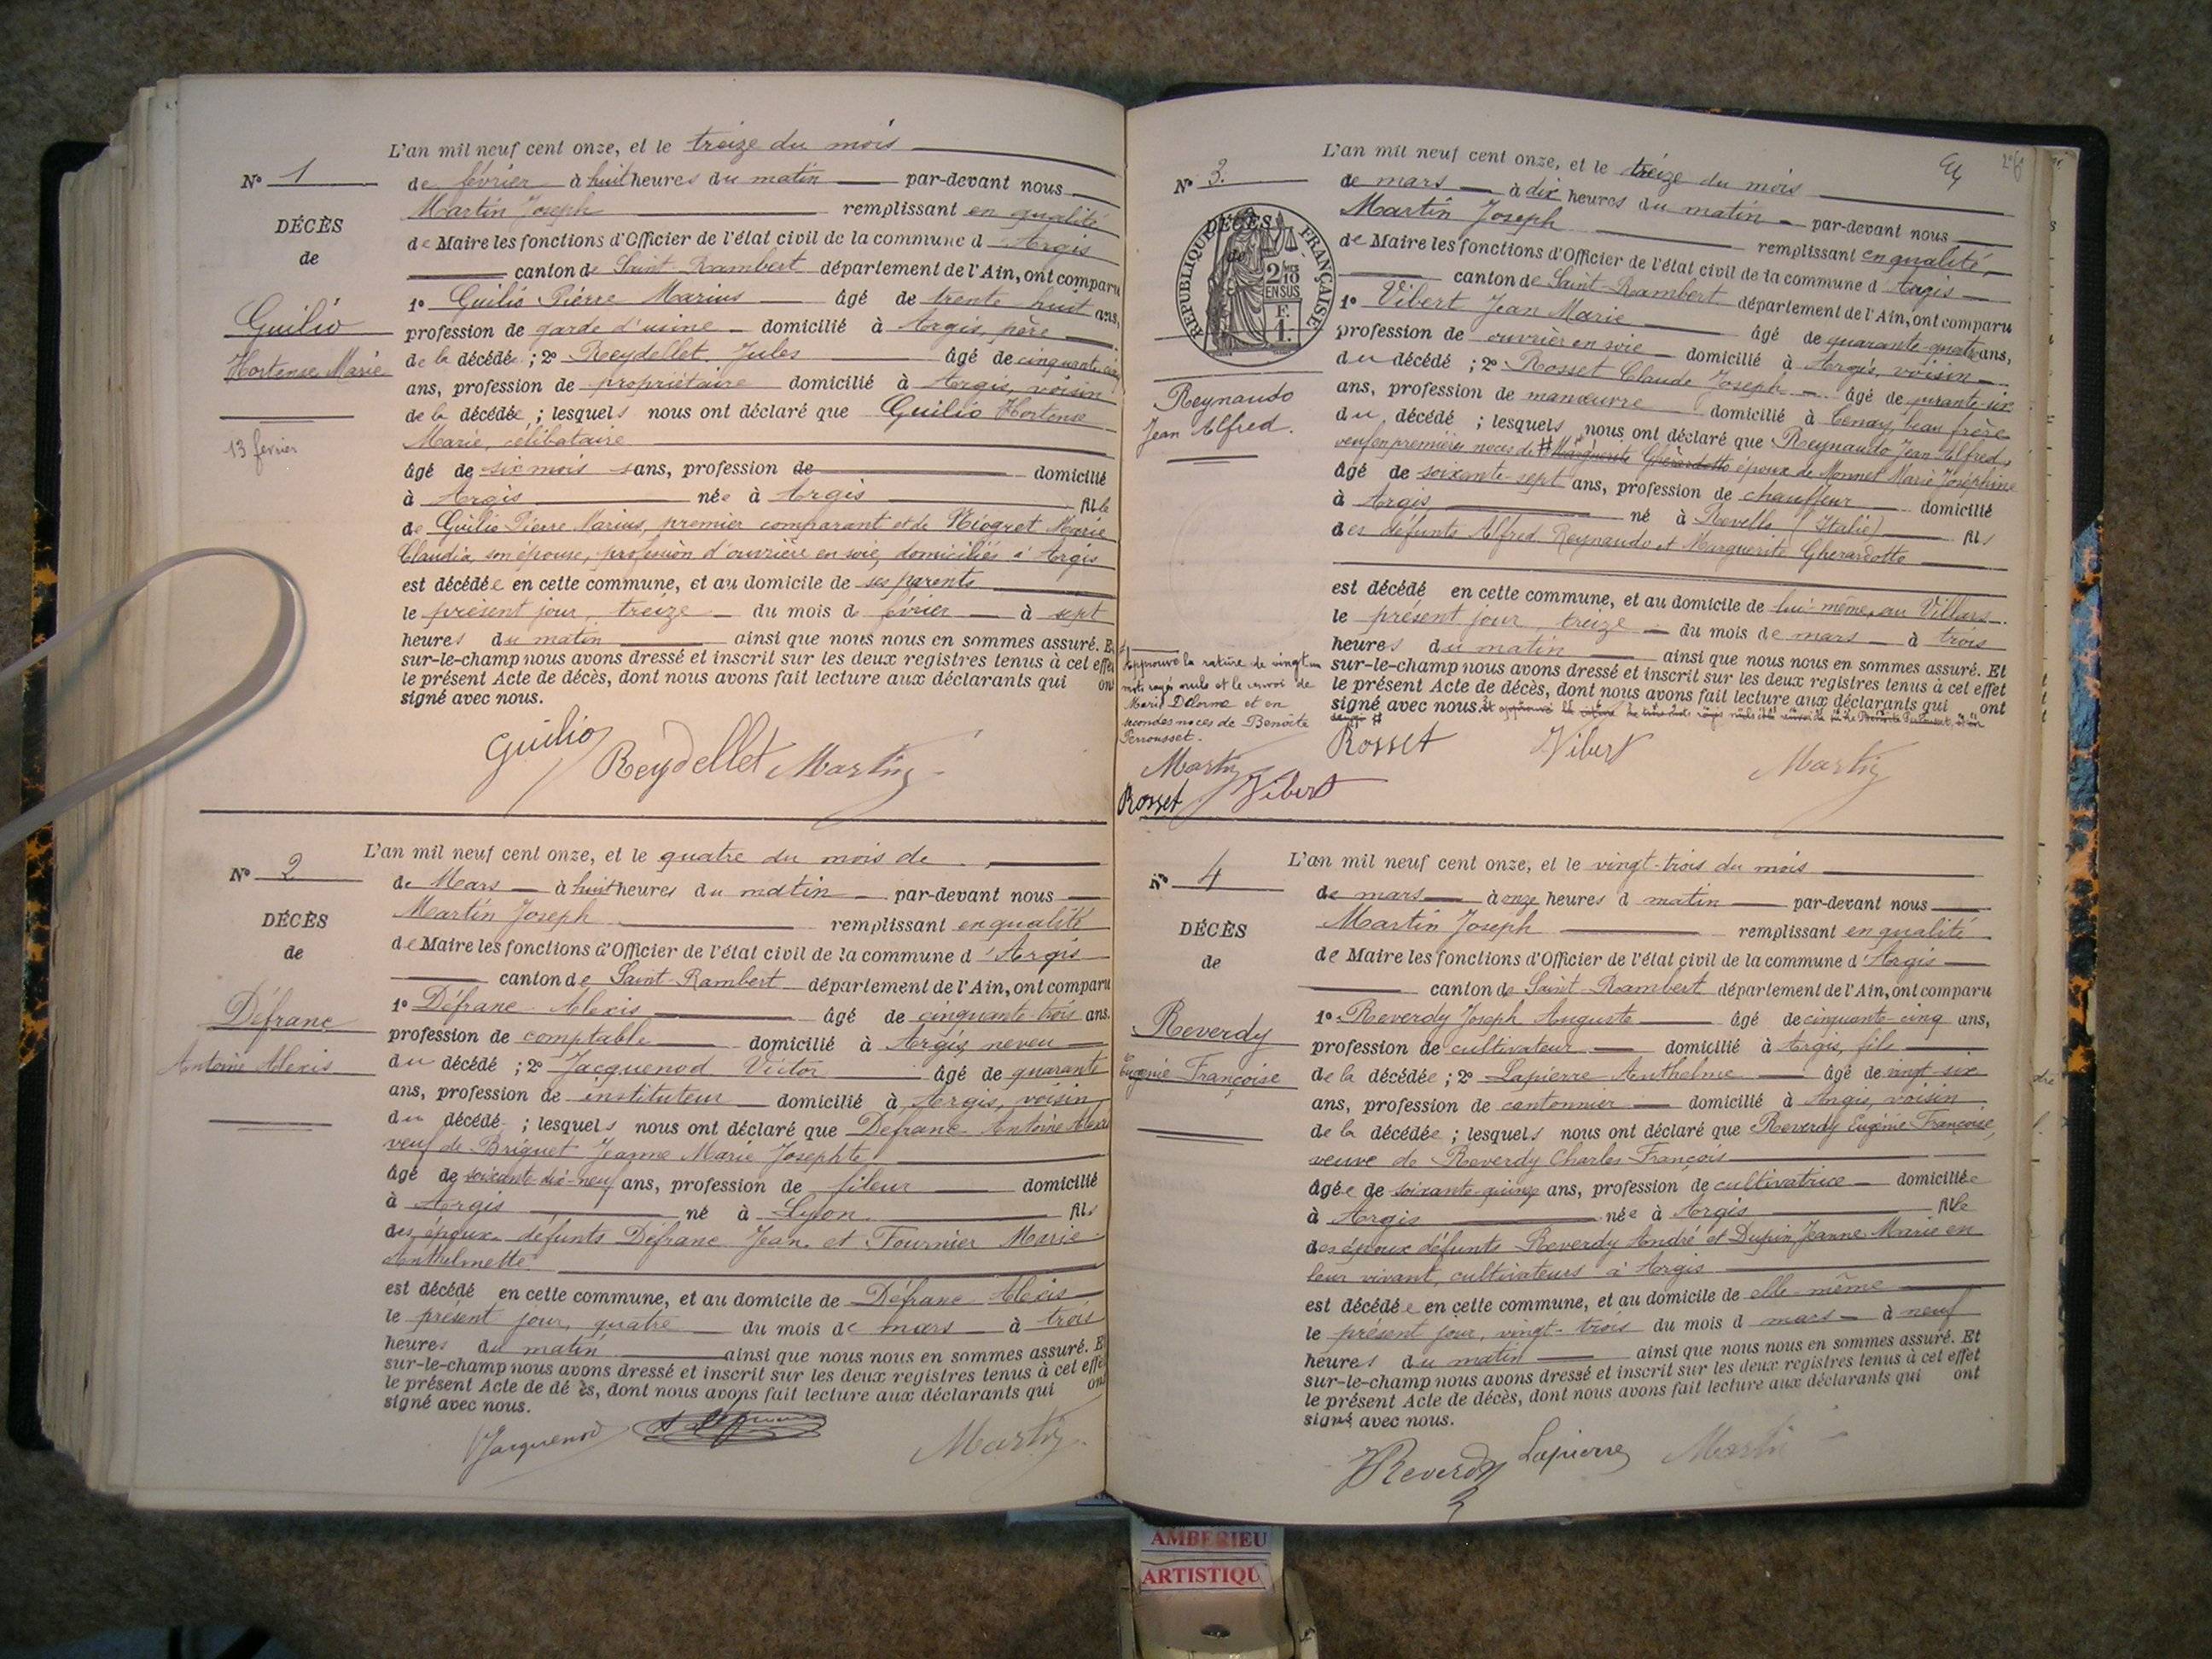 L'an mil neuf cent onze, et le treize du mois
N° 1
de février à huit heures du matin par-devant nous
Martin Joseph remplissant en qualité
DÉCÈS
de Maire les fonctions d'Officier de l'état civil de la commune d Argis
de
canton de Saint Rambert département de l'Ain, ont comparu
1° Guilio Pierre Marius âgé de trente huit ans,
Guilio
profession de garde d'usine domicilié à Argis, père
Hortense Marie
de la décédée ; 2° Reydellet Jules âgé de cinquante six
ans, profession de propriétaire domicilié à Argis, voisin
de la décédée ; lesquels nous ont déclaré que Guilio Hortense
13 février
Marie, célibataire
âgé de six mois ans, profession de domicilié
à Argis née à Argis fille
de Guilio Pierre Marius, premier comparant et de Niogret Marie
Claudia, son épouse, profession d'ouvrière en soie, domiciliés à Argis
est décédée en cette commune, et au domicile de ses parents
le présent jour, treize du mois de février à sept
heures du matin ainsi que nous nous en sommes assuré. E
sur-le-champ nous avons dressé et inscrit sur les deux registres tenus à cet effe
le présent Acte de décès, dont nous avons fait lecture aux déclarants qui on
signé avec nous.
Guilio Reydellet Martin
L'an mil neuf cent onze, et le quatre du mois de
N° 2
de Mars à huit heures du matin par-devant nous
Martin Joseph remplissant en qualité
DÉCÈS
de Maire les fonctions d'Officier de l'état civil de la commune d'Argis
de
canton de Saint-Rambert département de l'Ain, ont comparu
1° Défranc Alexis âgé de cinquante-trois ans.
Défranc
profession de comptable domicilié à Argis, neveu
Antoine Alexis
du décédé ; 2° Jacquenod Victor âgé de quarante
ans, profession de instituteur domicilié à Argis, voisin
du décédé ; lesquels nous ont déclaré que Défranc Antoine Alexis
veuf de Briguet Jeanne Marie Josephte
âgé de soixante-dix-neuf ans, profession de fileur domicilié
à Argis né à Lyon fils
des époux défunts Défranc Jean et Fournier Marie
Anthelmette
est décédé en cette commune, et au domicile de Défranc Alexis
le présent jour, quatre du mois de mars à trois
heures du matin ainsi que nous nous en sommes assuré. E
sur-le-champ nous avons dressé et inscrit sur les deux registres tenus à cet effe
le présent Acte de dé ès, dont nous avons fait lecture aux déclarants qui on
signé avec nous.
Jacquenod Martin
L'an mil neuf cent onze, et le treize du mois
N° 3.
de mars à dix heures du matin par-devant nous
Martin Joseph remplissant en qualité
DÉCÈS
de
RÉPUBLIQUE FRANÇAISE
2/10 EN SUS
F. 1.
de Maire les fonctions d'Officier de l'état civil de la commune d Argis
canton de Saint-Rambert département de l'Ain, ont comparu
1° Vibert Jean Marie âgé de quarante-quatre ans,
profession de ouvrier en soie domicilié à Argis, voisin
Reynaudo
Jean Alfred.
du décédé ; 2° Rosset Claude Joseph âgé de
ans, profession de manœuvre domicilié à Tenay, beau frère
du décédé ; lesquels nous ont déclaré que Reynaudo Jean Alfred,
veuf en premières noces de # Marguerite Gherardotto époux de Monnet Marie Joséphine
âgé de soixante-sept ans, profession de chauffeur domicilié
à Argis né à Revello (Italie) fils
des défunts Alfred Reynaudo et Marguerite Gherardotto
est décédé en cette commune, et au domicile de lui-même, au Villars
le présent jour, treize du mois de mars à trois
heures du matin ainsi que nous nous en sommes assuré. Et
sur-le-champ nous avons dressé et inscrit sur les deux registres tenus à cet effet
le présent Acte de décès, dont nous avons fait lecture aux déclarants qui ont
signé avec nous.
# Approuvé la rature de vingt un
mots rayés nuls et le renvoi de
Marie Delorme et en
secondes noces de Benoîte
Perrousset.
Rosset Vibert Martin
Martin
Rosset Vibert
L'an mil neuf cent onze, et le vingt-trois du mois
N° 4
de mars à onze heures d matin par-devant nous
Martin Joseph remplissant en qualité
DÉCÈS
de Maire les fonctions d'Officier de l'état civil de la commune d'Argis
de
canton de Saint-Rambert département de l'Ain, ont comparu
1° Reverdy Joseph Auguste âgé de cinquante-cinq ans,
Reverdy
profession de cultivateur domicilié à Argis, fils
Eugénie Françoise
de la décédée ; 2° Lapierre Anthelme âgé de vingt-six
ans, profession de cantonnier domicilié à Argis, voisin
de la décédée ; lesquels nous ont déclaré que Reverdy Eugénie Françoise,
veuve de Reverdy Charles François
âgée de soixante-quinze ans, profession de cultivatrice domiciliée
à Argis née à Argis fille
des époux défunts Reverdy André et Dupin Jeanne Marie en
leur vivant, cultivateurs à Argis
est décédée en cette commune, et au domicile de elle-même
le présent jour, vingt-trois du mois d mars à neuf
heures du matin ainsi que nous nous en sommes assuré. Et
sur-le-champ nous avons dressé et inscrit sur les deux registres tenus à cet effet
le présent Acte de décès, dont nous avons fait lecture aux déclarants qui ont
signé avec nous.
Reverdy Lapierre Martin
AMBERIEU
ARTISTIQU